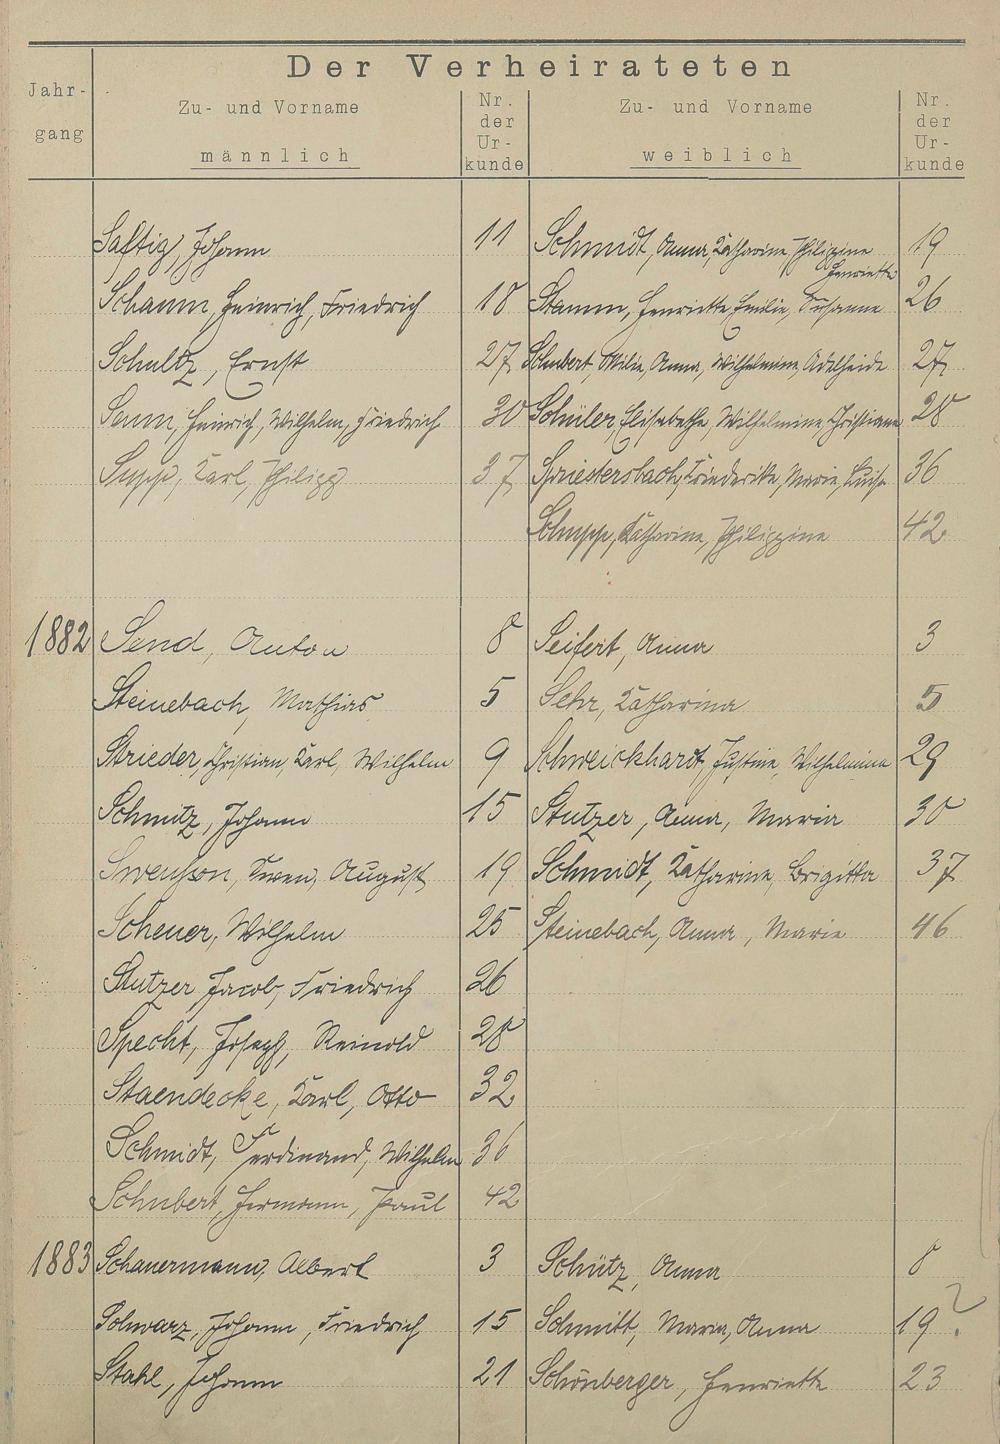 Der Verheirateten
Jahr-
gang
Zu- und Vorname
männlich
Nr.
der
Ur-
kunde
Zu- und Vorname
weiblich
Nr.
der
Ur-
kunde
Saftig, Johann 11 Schmidt, Anna, Katharine Philippine 19
Henriette
Schamm, Heinrich, Friedrich 18 Stamm, Henriette, Emilie, Susanne 26
Schultz, Ernst 27 Schubert, Milie, Anna, Wilhelmine, Adelheide 27
Sann, Heinrich, Wilhelm, Friedrich 30 Schüler, Elisabethe, Wilhelmine Christiane 28
Supp, Karl, Philipp 37 Spriestersbach, Friederike, Marie, Luise 36
Schupp, Katharine, Philippine 42
1882 Send, Anton 8 Seifert, Anna 3
Steinebach, Mathias 5 Sehr, Katharina 5
Strieder, Christian, Karl, Wilhelm 9 Schweickhardt Justine, Wilhelmine 29
Schmitz, Johann 15 Stutzer, Anna, Maria 30
Swenson, Swen, August 19 Schmidt, Katharine, Brigitta 37
Scheuer, Wilhelm 25 Steinebach, Anna, Marie 46
Stutzer, Jacob, Friedrich 26
Specht, Joseph, Reinold 28
Staendecke, Karl, Otto 32
Schmidt, Ferdinand, Wilhelm 36
Schubert, Hermann, Paul 42
1883 Schauermann, Albert 3 Schütz, Anna 8
Schwarz, Johann, Friedrich 15 Schmitt, Maria, Anna 19 ?
Stahl, Johann 21 Schönberger, Henriette 23